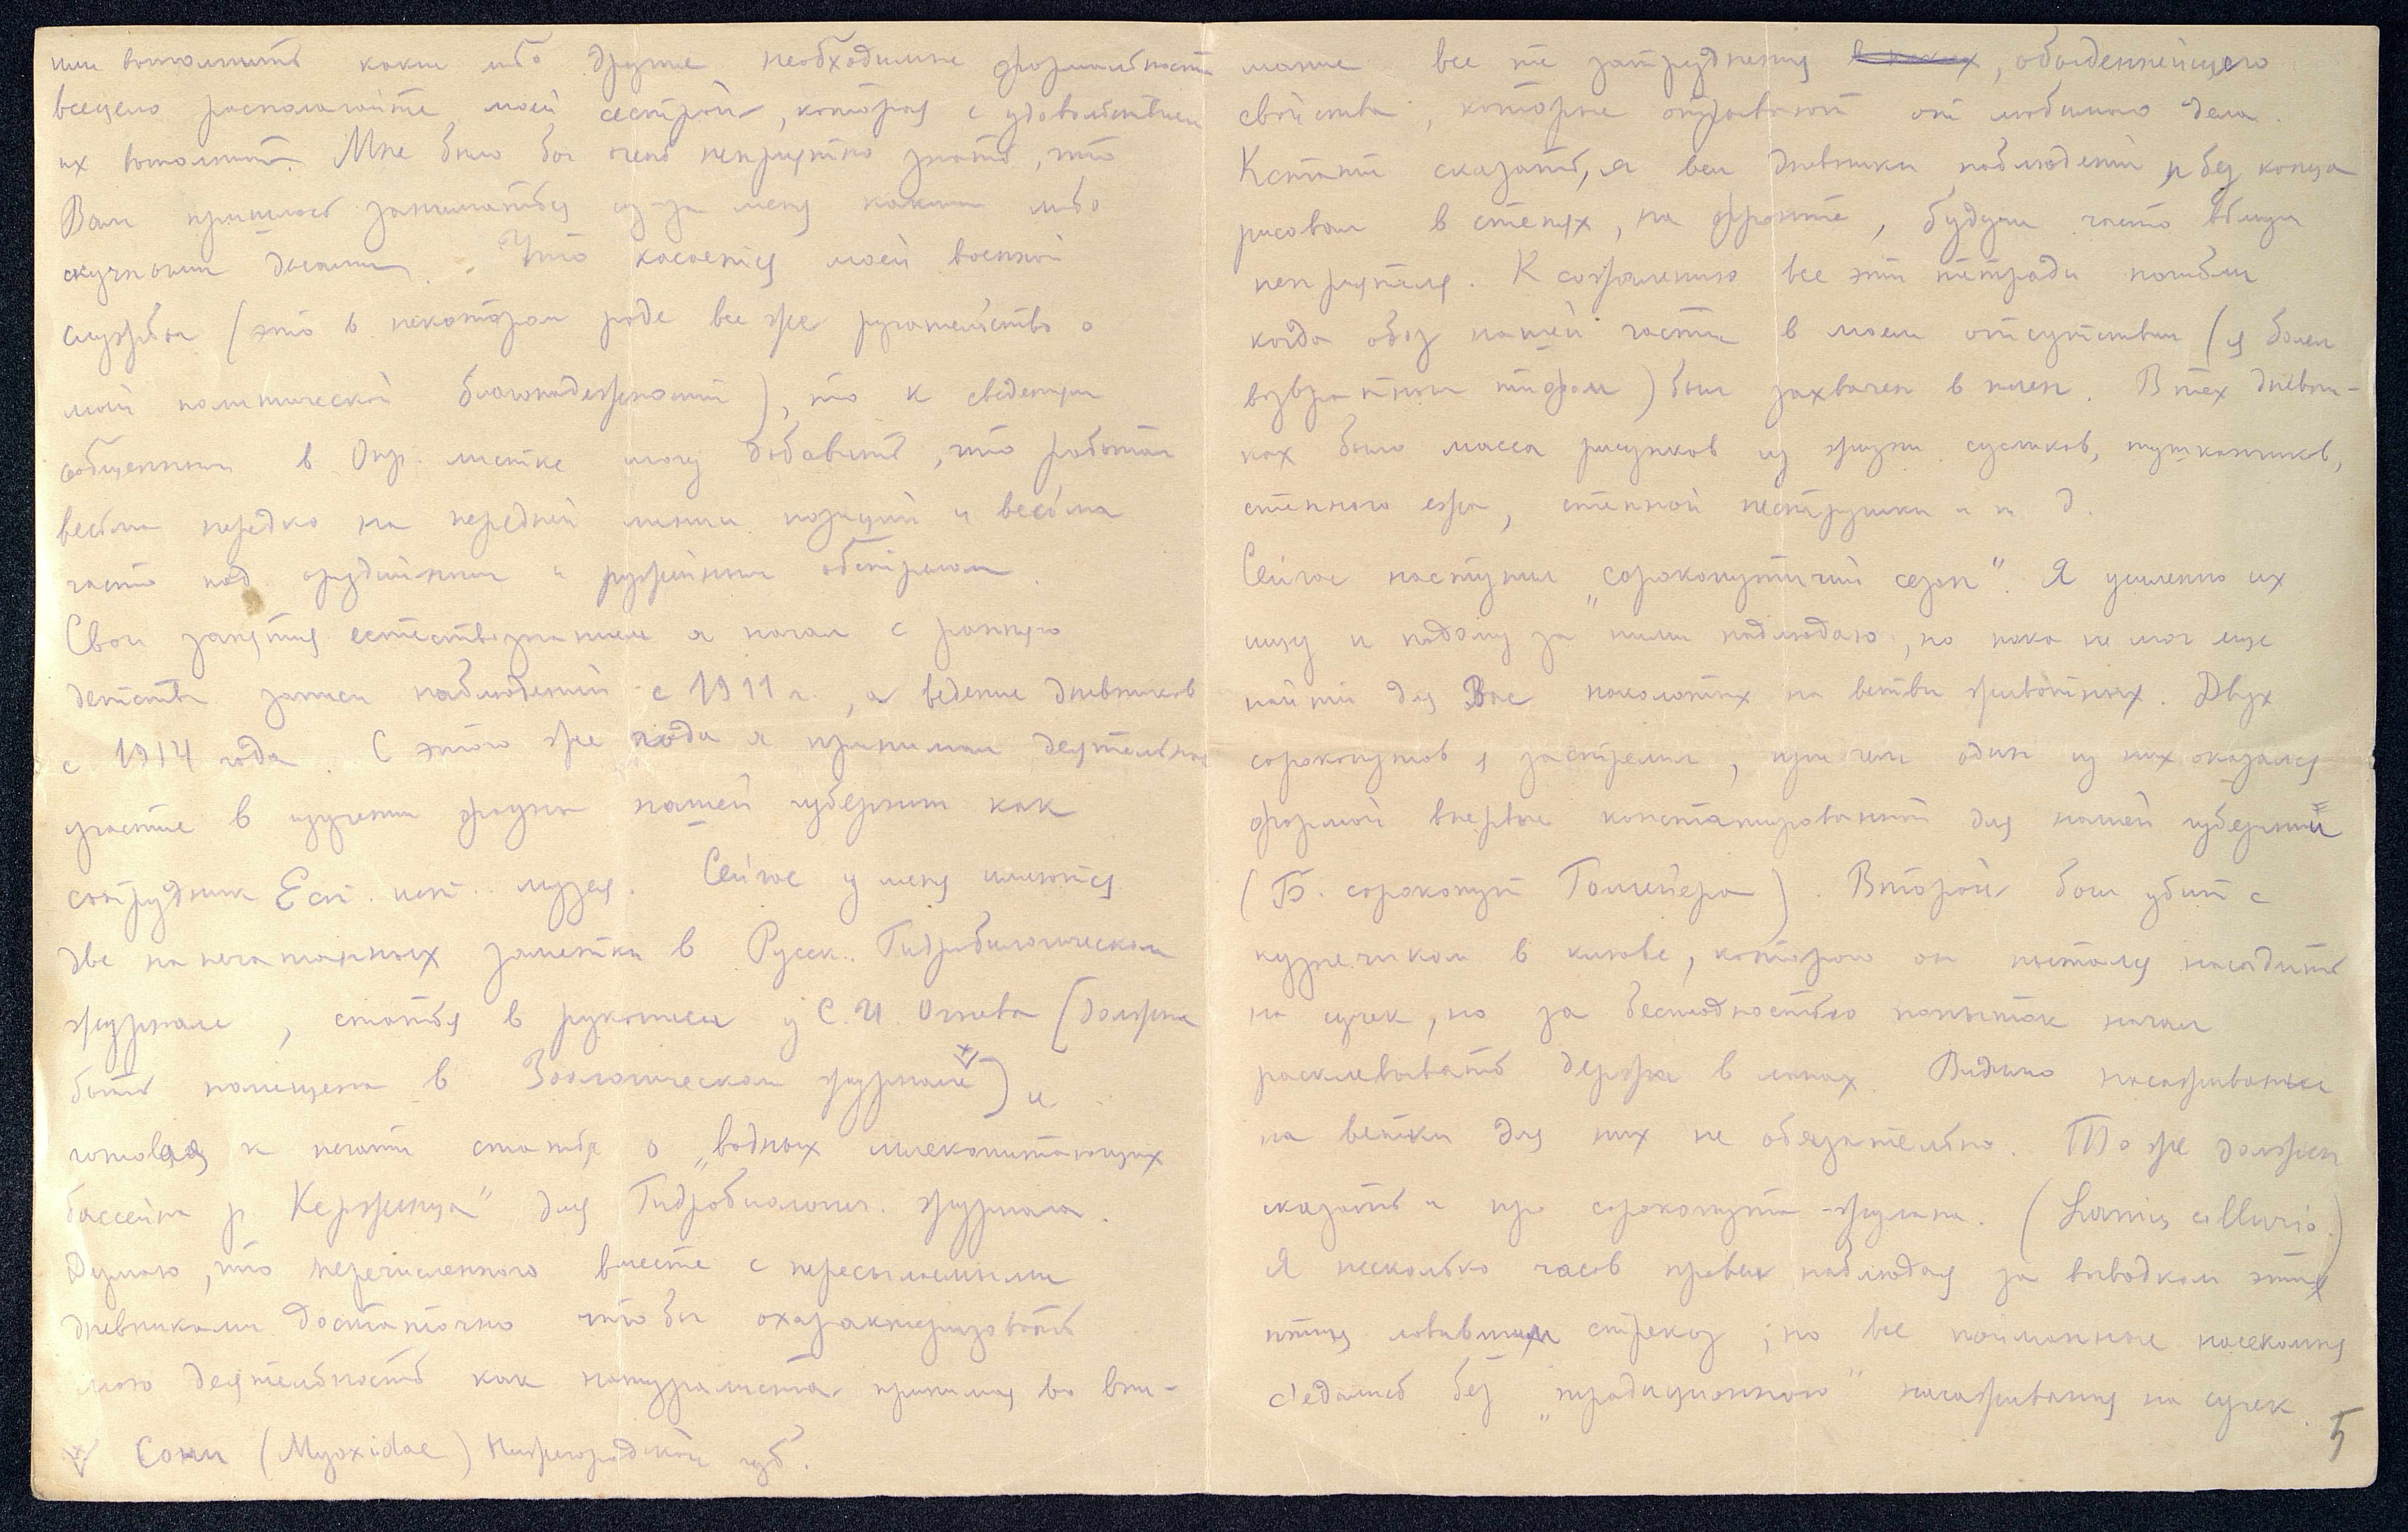 или выполнить какие либо другие необходимые формальности
всецело располагайте моей сестрой, которая с удовольствием
их выполнит. Мне было бы очень неприятно знать, что
Вам пришлось заниматься из-за меня какими либо
скучными делами. Что касается моей военной
службы (это в некотором роде все же ругательство о
моей политической благонадежности), то к сведениям
сообщенным в Опр. листке могу добавить, что работал
весьма нередко на передней линии позиций и весьма
часто под орудийным и ружейным обстрелом.
Свои занятия естествознанием я начал с раннего
детства записи наблюдений с 1911 г, а ведение дневников
с 1914 года. С этого же года я принимал деятельное
участие в изучении фауны нашей губернии как
сотрудник Ест. ист. музея. Сейчас у меня имеются
две напечатанных заметки в Русск. Гидробиологическом
журнале, статья в рукописи у С.И Огнева (должна
быть помещена в Зоологическом журнале) и
готовая к печати статья о „водных млекопитающих
бассейна р. Керженца" для Гидробиологич. журнала.
Думаю, что перечисленного вместе с пересылаемыми
дневниками достаточно чтобы охарактеризовать
мою деятельность как натуралиста принимая во вни-
Сони (Myoxidae) Нижегородской губ.
мание все те затруднения, обыденнейшего
свойства, которые отрывают от любимого дела.
Кстати сказать, я вел дневники наблюдений и без конца
рисовал в степях, на фронте, будучи часто вблизи
неприятеля. К сожалению все эти тетради погибли
когда обоз нашей части в моем отсутствии (я болел
возвратным тифом) был захвачен в плен. В тех дневни-
ках было масса рисунков из жизни сусликов, тушканчиков,
степного ежа, степной пеструшки и т д.
Сейчас наступил „сорокопутичий сезон". Я усиленно их
ищу и подолгу за ними наблюдаю, но пока не мог еще
найти для Вас наколотых на ветви животных. Двух
сорокопутов я застрелил, при чем один из них оказался
формой впервые констатированной для нашей губернии
(Б. сорокопут Гомейера). Второй был убит с
кузнечиком в клюве, которого он пытался насадить
на сучек, но за бесплодностью попыток начал
расклевывать держа в лапах. Видимо насаживание
на ветки для них не обязательно. То же должен
сказать и про сорокопута-жулана. (Lanius collurio.)
Я несколько часов провел наблюдая за выводком этих
птиц ловивших стрекоз; но все пойманные насекомые
с'едались без „традиционного" насаживания на сучек.
5